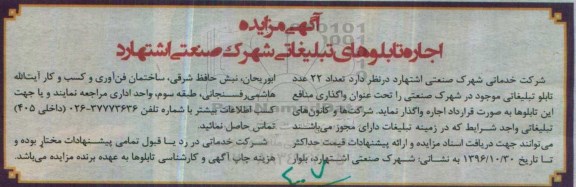 آگهی مزایده
اجاره تابلوهای تبلیغاتی شهرک صنعتی اشتهارد
شرکت خدماتی شهرک صنعتی اشتهارد درنظر دارد تعداد ۲۲ عدد
تابلو تبلیغاتی موجود در شهرک صنعتی را تحت عنوان واگذاری منافع
این تابلوها به صورت قرارداد اجاره واگذار نماید. شرکت‌ها و کانون‌های
تبلیغاتی واجد شرایط که در زمینه تبلیغات دارای مجوز می‌باشند
می‌توانند جهت دریافت اسناد مزایده و ارائه پیشنهادات قیمت حداکثر
تا تاریخ ۱۳۹۶/۱۰/۳۰ به نشانی: شهرک صنعتی اشتهارد، بلوار
ابوریحان، نبش حافظ شرقی، ساختمان فن‌آوری و کسب و کار آیت‌الله
هاشمی رفسنجانی، طبقه سوم، واحد اداری مراجعه نمایند و یا جهت
کسب اطلاعات بیشتر با شماره تلفن ۳۷۷۷۳۶۳۶-۰۲۶ (داخلی ۴۰۵)
تماس حاصل نمائید.
شرکت خدماتی در رد یا قبول تمامی پیشنهادات مختار بوده و
هزینه چاپ آگهی و کارشناسی تابلوها به عهده برنده مزایده می‌باشد.